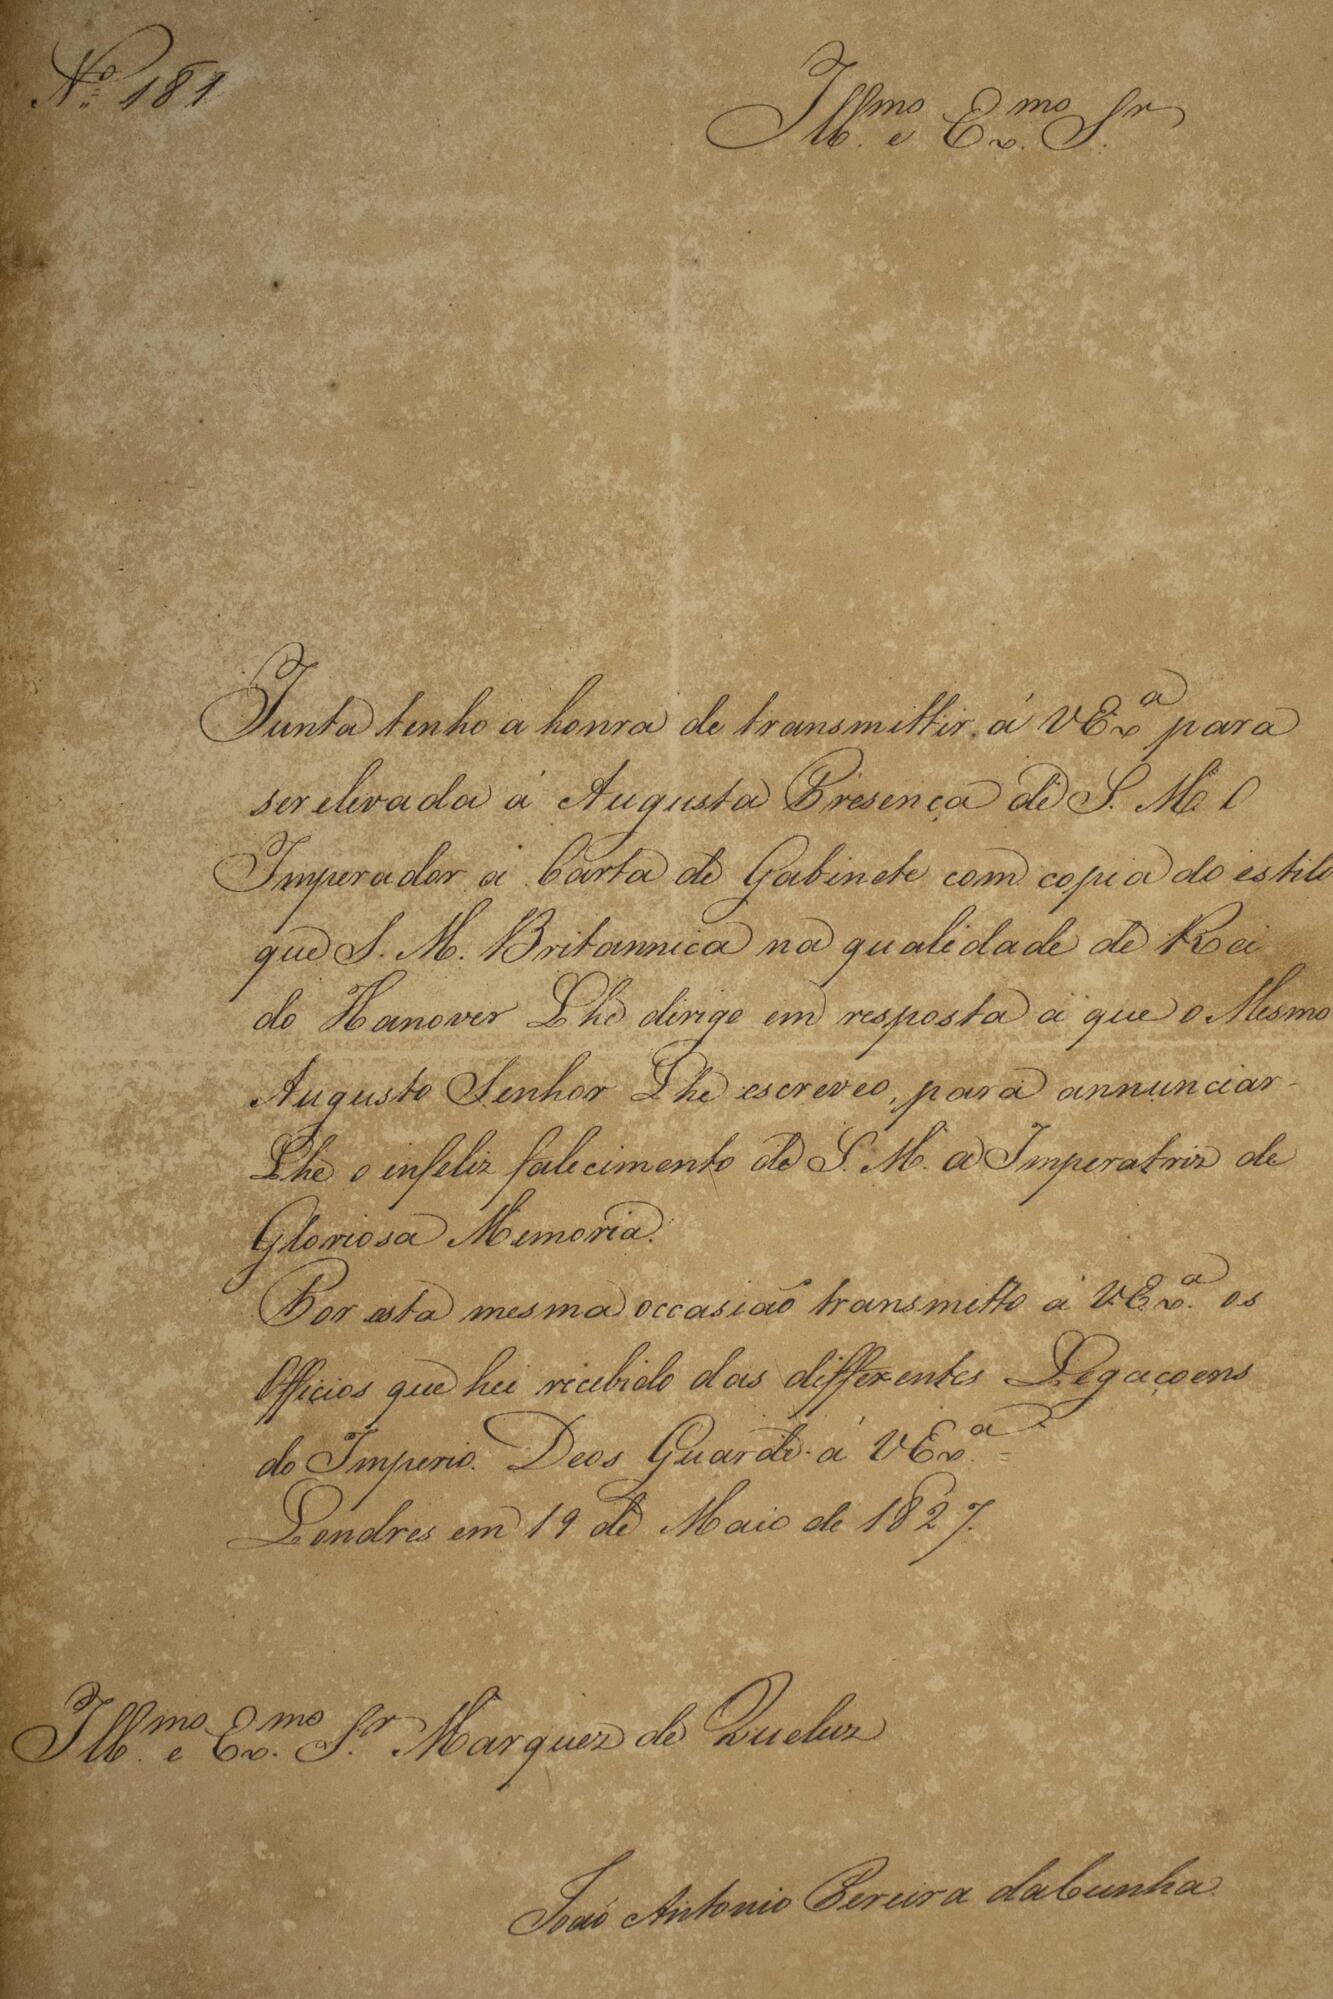 Nº 181
Illmo e Exmo Sr
Junta tenho a honra de transmittir á VExª para
ser elevada á Augusta Presença de S. M. O
Imperador a Carta de Gabinete com copia do estilo
que S. M. Britannica na qualidade de Rei
do Hanover Lhe dirige em resposta a que o Mesmo
Augusto Senhor Lhe escreveo, para annunciar-
Lhe o infeliz falecimento de S. M. a Imperatriz de
Gloriosa Memoria.
Por esta mesma occasiaõ transmitto á VExª. os
Officios que hei recibido das differentes Legaçoens
do Imperio. Deos Guarde á VExª. =
Londres em 19 de Maio de 1827.
Illmo. e Exmo. Sr. Marquez de Queluz
Joaõ Antonio Pereira da Cunha.